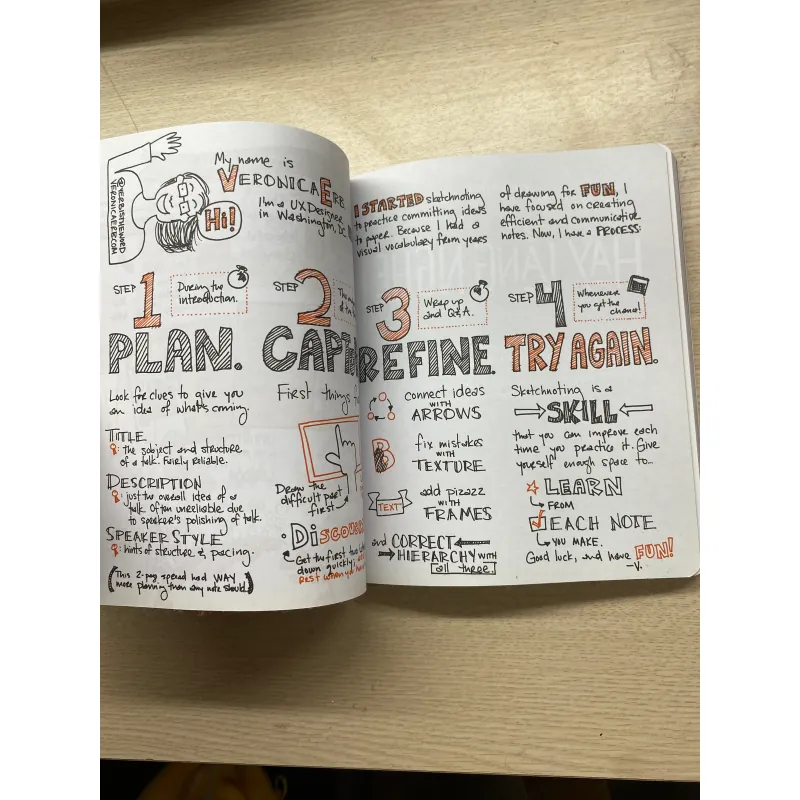 @VERBISTHEWORD
VERONICAERB.COM
Hi!
My name is
VERONICA ERB
I'm a UX Designer
in Washington, DC
I STARTED sketchnoting
to practice committing ideas
to paper. Because I had a
visual vocabulary from years
of drawing for FUN, I
have focused on creating
efficient and communicative
notes. Now, I have a PROCESS:
STEP 1
During the
introduction.
PLAN.
Look for clues to give you
an idea of what's coming.
TITLE
: the subject and structure
of a talk. Fairly reliable.
DESCRIPTION
: just the overall idea of a
talk. Often unreliable due
to speaker's polishing of talk.
SPEAKER STYLE
: hints of structure & pacing.
(This 2-page spread had WAY
more planning than any note should.)
STEP 2
CAPT
First things
Draw the
difficult part
first
Get the first two
down quickly;
REST WHEN YOU
STEP 3
Wrap up
and Q&A.
REFINE.
connect ideas
WITH
ARROWS
B
fix mistakes
WITH
TEXTURE
TEXT
add pizazz
WITH
FRAMES
and CORRECT
HIERARCHY WITH
all three.
STEP 4
Whenever
you get the
chance!
TRY AGAIN.
Sketchnoting is a
SKILL
that you can improve each
time you practice it. Give
yourself enough space to...
LEARN
FROM
EACH NOTE
YOU MAKE.
Good luck, and have FUN!
—V.